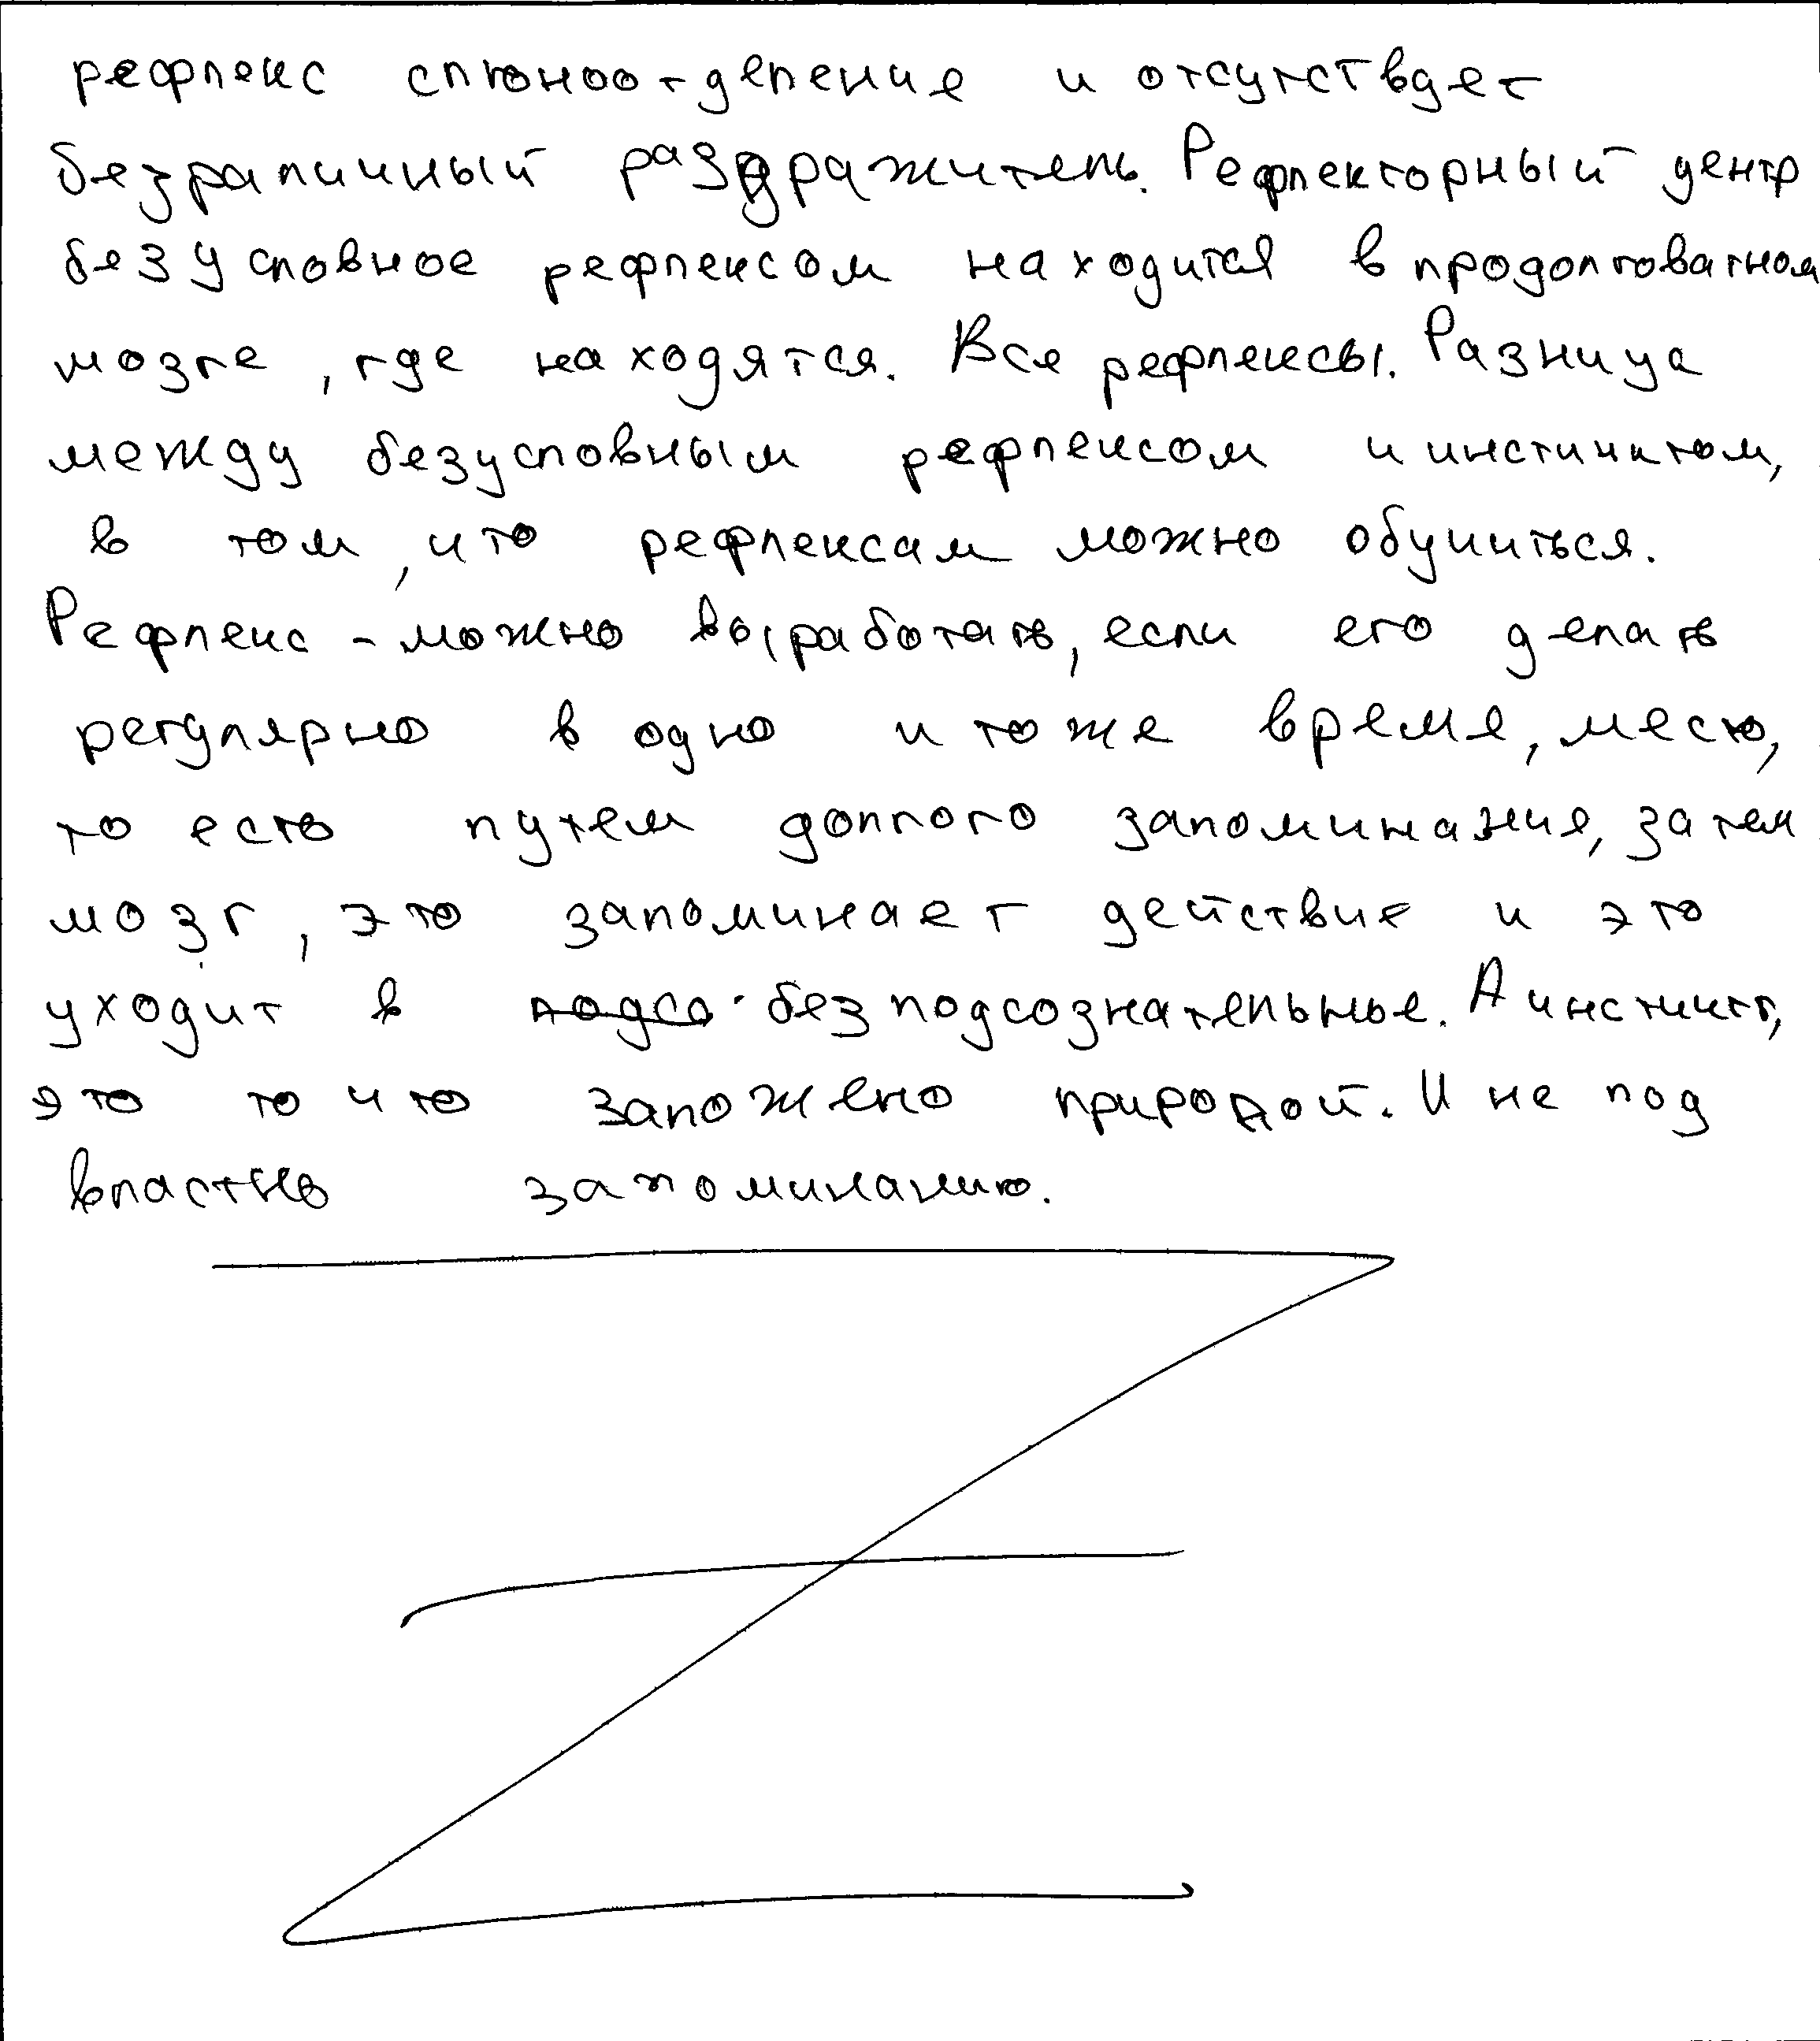 рефлекс слюноотделение и отсутствует
безраличный раздражитель. Рефлекторный центр
безусловное рефлексом находится в продолговатном
мозге, где находятся. Все рефлексы. Разница
между безусловным рефлексом и инстинктом,
в том, что рефлексам можно обучиться.
Рефлекс - можно выработать, если его делать
регулярно в одно и тоже время, место,
то есть путем долгого запоминания, затем
мозг, это запоминает действие и это
уходит в подсо безподсознательные. А инстинкт,
это то что заложено природой. И не под
властно запоминанию.